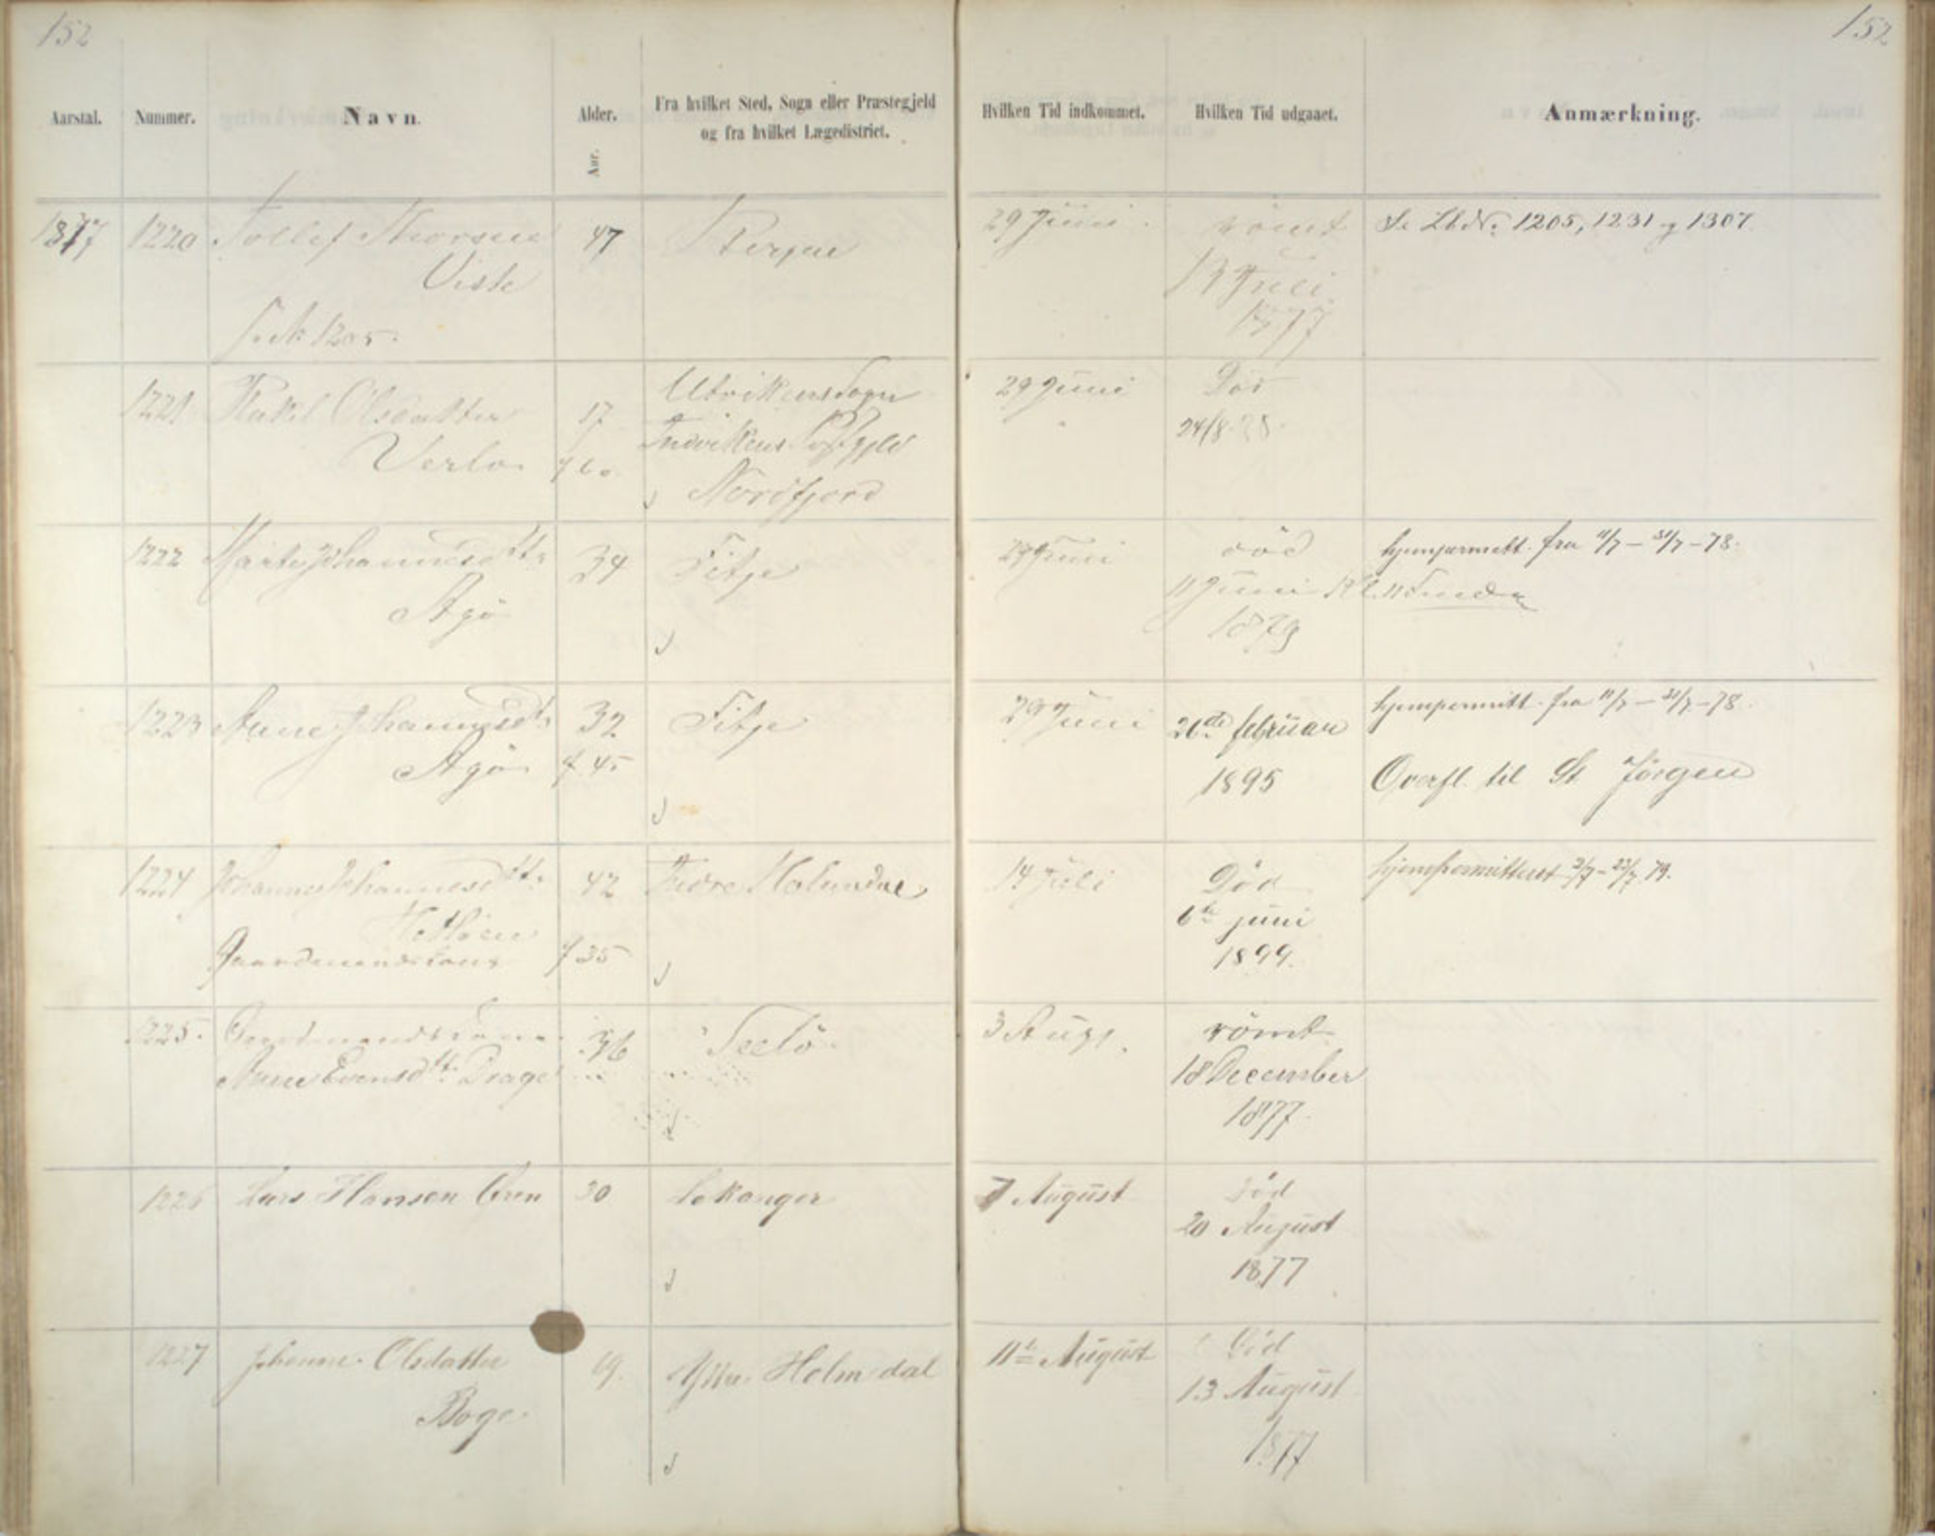 152
152
Aarstal.
Nummer.
Navn.
Alder.
Aar.
Fra hvilket Sted, Sogn eller Præstegjeld
og fra hvilket Lægedistrict.
Hvilken Tid indkommet.
Hvilken Tid udgaaet.
Anmærkning.
1877 1220 Tollef Thorsen 47 Bergen 29 Juni rømt Se LbNr. 1205, 1231 og 1307
Viste 13 Juli
1877
1205
1221 Rakel Olsdatter 17 Utvikens Sogn 29 Juni Død
Indvikens 24/8
Verlo Nordfjord
1222 Marte Johannesdtt. 34 Fitje 29 Juni død hjempermitt. fra 11/7 – 31/7 – 78.
Agø 11 Juni
1879
1223 Anne Johannesdt. 32 Fitje 29 Juni 26de februar hjempermitt. fra 11/7 – 31/7 – 78.
Agø 45 1895 Overfl. til St Jørgen
1224 Johanne Johannesdtt. 42 Indre Holmedal 14 Juli Død hjempermitteret 2/7 – 23/7 79.
6te juni
Gaardmandskone 35 1899.
1225. Gaardmandskone 36 Selø 3 Aug. rømt
Anne Evensdtt. Drage 18 December
1877.
1226 Lars Hansen Øren 30 Lekanger 7 August Død
20 August
1877
1227 Johanne Olsdatter 19. Ytre Holmedal 11te August Død
Boge 13 August
1877